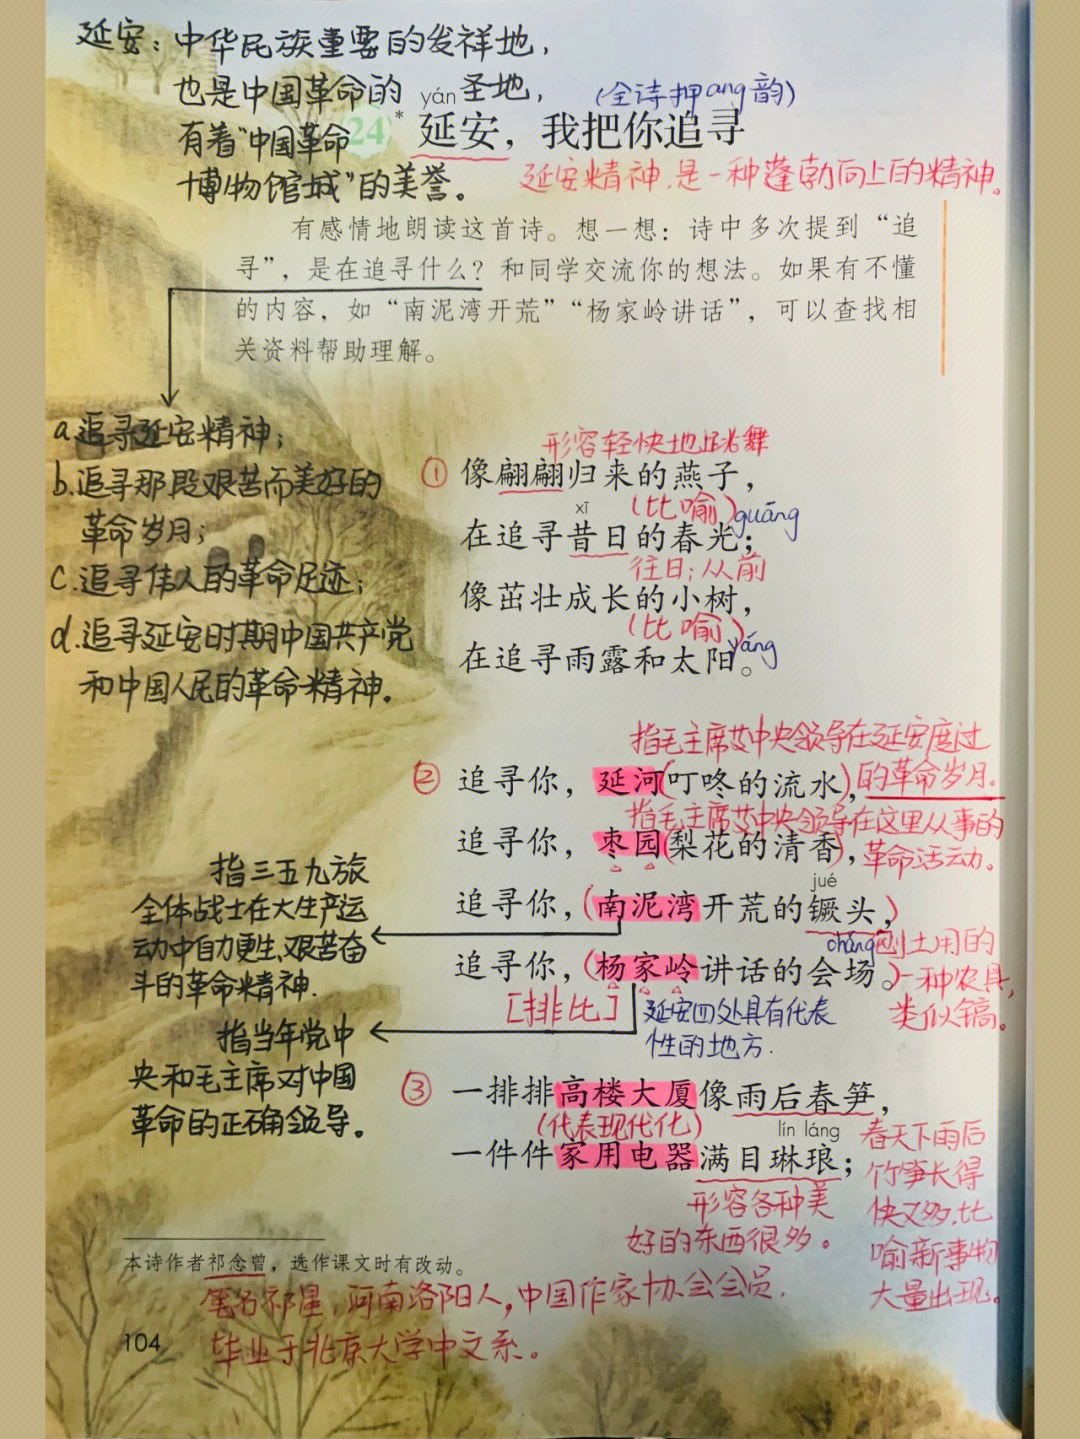 延安：中华民族重要的发祥地，
也是中国革命的圣地，
有着“中国革命
博物馆城”的美誉。
(全诗押ang韵)
yán
24* 延安，我把你追寻
延安精神，是一种蓬勃向上的精神。
有感情地朗读这首诗。想一想：诗中多次提到“追
寻”，是在追寻什么？和同学交流你的想法。如果有不懂
的内容，如“南泥湾开荒”“杨家岭讲话”，可以查找相
关资料帮助理解。
a.追寻延安精神；
b.追寻那段艰苦而美好的
革命岁月；
c.追寻伟人的革命足迹；
d.追寻延安时期中国共产党
和中国人民的革命精神。
形容轻快地
舞
① 像翩翩归来的燕子，
(比喻)
xī
guāng
在追寻昔日的春光；
往日；从前
像茁壮成长的小树，
(比喻)
yáng
在追寻雨露和太阳。
指毛主席
中央领导在延安度过
的革命岁月.
② 追寻你，延河(叮咚的流水)，
指毛主席
中央领导在这里从事的
革命活动。
追寻你，枣园(梨花的清香)，
jué
追寻你，(南泥湾开荒的镢头，)
chǎng
刨土用的
一种农具，
类似镐。
追寻你，(杨家岭讲话的会场。)
[排比]
延安四处具有代表
性的地方.
指三五九旅
全体战士在大生产运
动中自力更生、艰苦奋
斗的革命精神.
指当年党中
央和毛主席对中国
革命的正确领导。
③ 一排排高楼大厦像雨后春笋，
(代表现代化)
lín láng
一件件家用电器满目琳琅；
形容各种美
好的东西很多。
春天下雨后
竹笋长得
快又多，比
喻新事物
大量出现。
本诗作者祁念曾，选作课文时有改动。
笔名祁星，河南洛阳人，中国作家协会会员.
毕业于北京大学中文系。
104